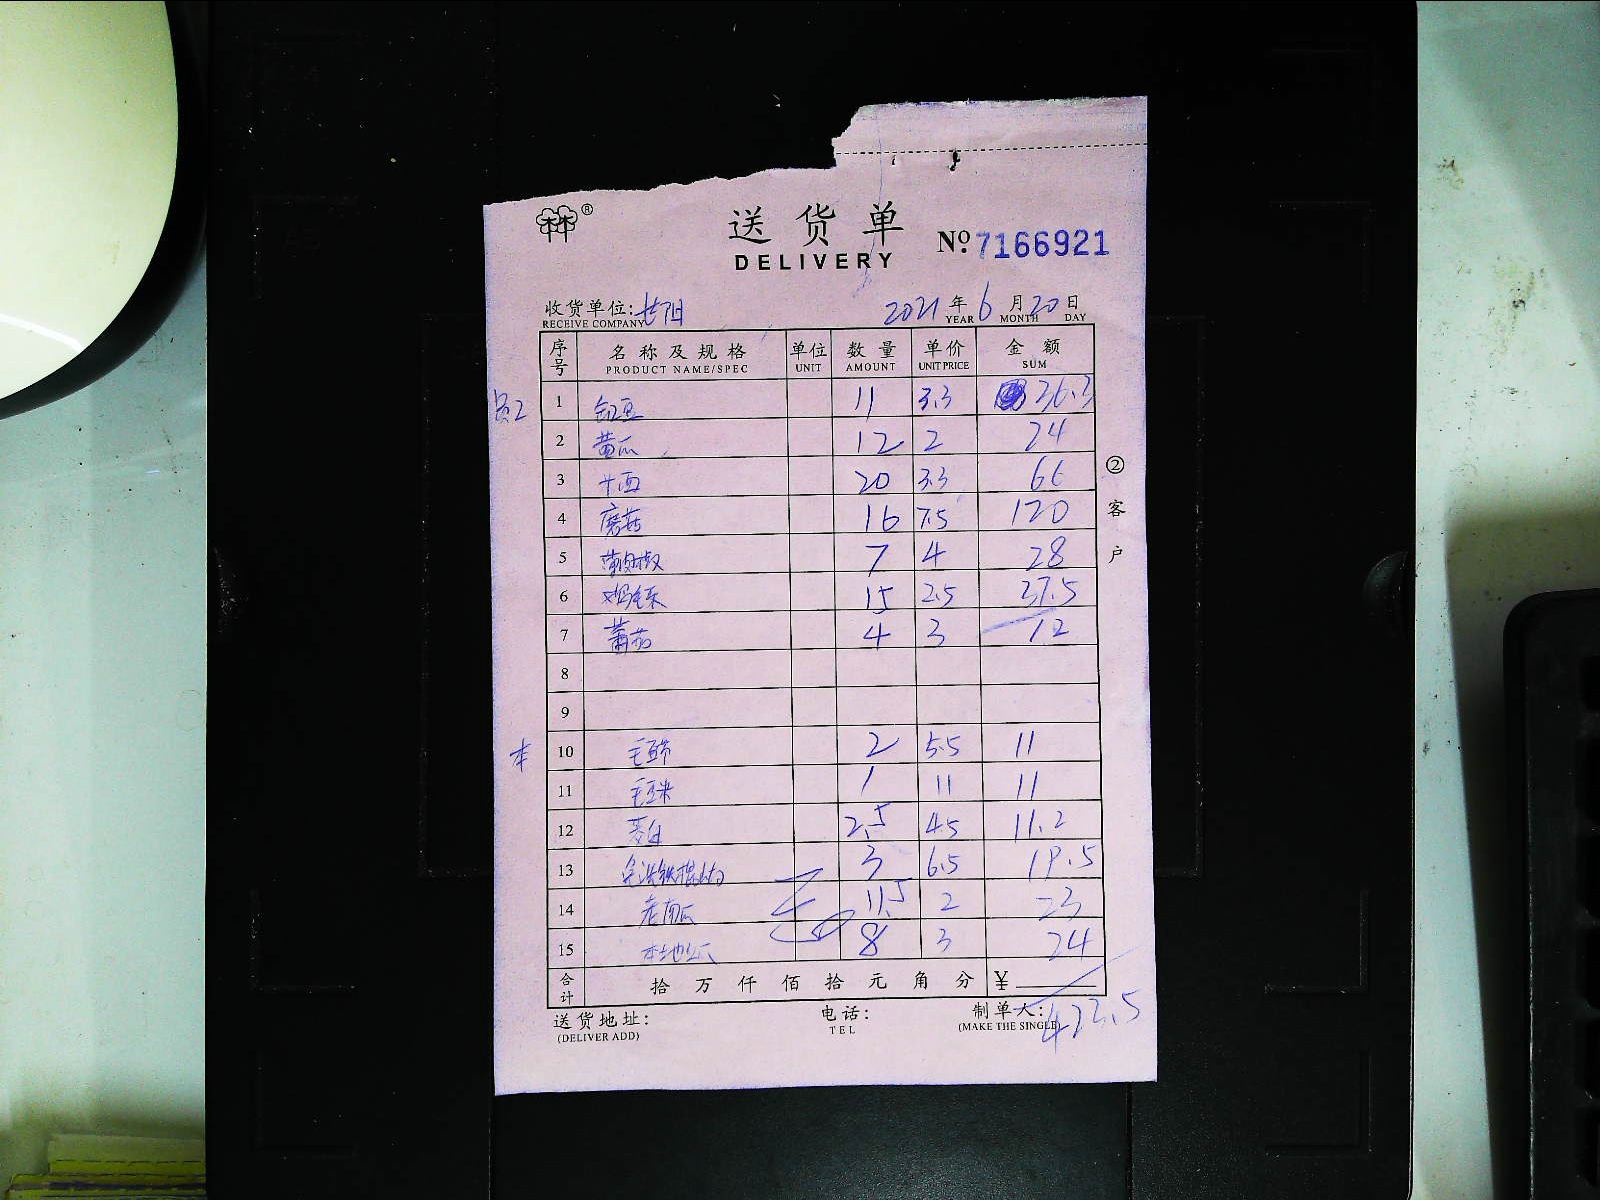 林林®
送货单
DELIVERY
Nº 7166921
收货单位: 长阳 2021年6月20日
RECEIVE COMPANY YEAR MONTH DAY
序号 名称及规格 单位 数量 单价 金额
PRODUCT NAME/SPEC UNIT AMOUNT UNIT PRICE SUM
员工 1 11 3.3 36.3
2 黄瓜 12 2 24
3 20 3.3 66
4 磨菇 16 7.5 120
5 薄皮椒 7 4 28
6 15 2.5 37.5
7 蕃茄 4 3 12
8
9
本 10 毛豆节 2 5.5 11
11 毛豆米 1 11 11
12 茭白 2.5 4.5 11.2
13 3 6.5 19.5
14 老南瓜 11.5 2 23
15 本地 8 3 24
合计 拾 万 仟 佰 拾 元 角 分 ¥
422.5
送货地址: 电话: 制单人:
(DELIVER ADD) TEL (MAKE THE SINGLE)
②客户